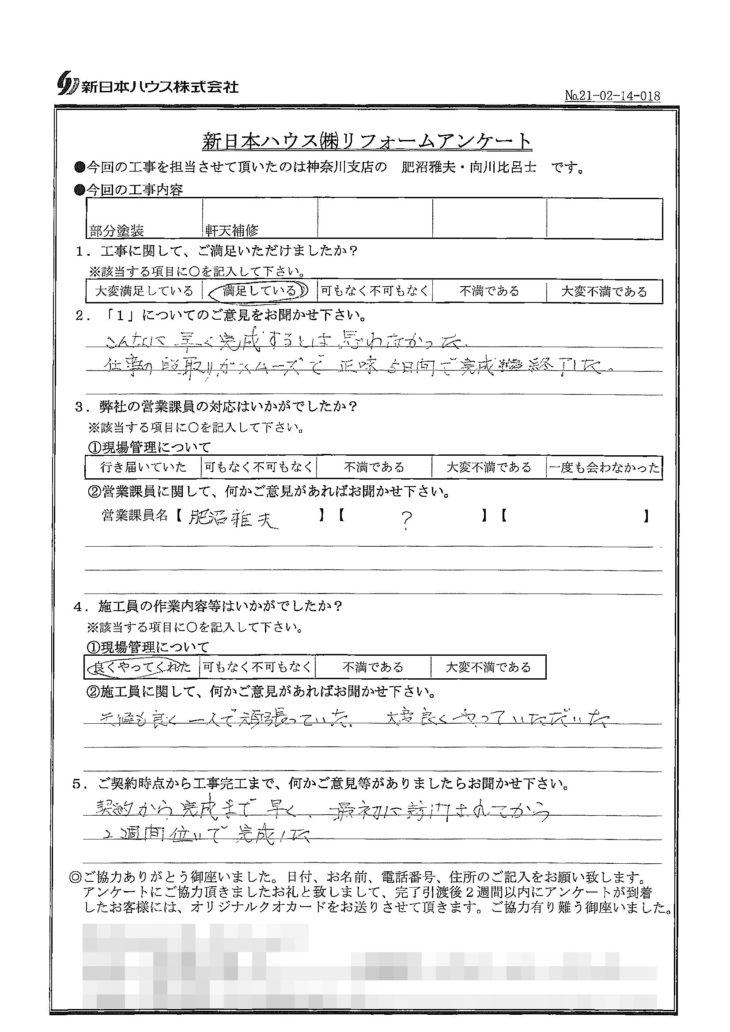 新日本ハウス株式会社
№21-02-14-018
新日本ハウス㈱リフォームアンケート
●今回の工事を担当させて頂いたのは神奈川支店の 肥沼雅夫・向川比呂士 です。
●今回の工事内容
部分塗装 軒天補修
1．工事に関して、ご満足いただけましたか？
※該当する項目に○を記入して下さい。
大変満足している 満足している 可もなく不可もなく 不満である 大変不満である
2．「1」についてのご意見をお聞かせ下さい。
こんなに早く完成するとは思わなかった、
仕事の段取りがスムーズで正味5日間で完成終了した。
3．弊社の営業課員の対応はいかがでしたか？
※該当する項目に○を記入して下さい。
①現場管理について
行き届いていた 可もなく不可もなく 不満である 大変不満である 一度も会わなかった
②営業課員に関して、何かご意見があればお聞かせ下さい。
営業課員名【 肥沼雅夫 】【 ？ 】【 】
4．施工員の作業内容等はいかがでしたか？
※該当する項目に○を記入して下さい。
①現場管理について
良くやってくれた 可もなく不可もなく 不満である 大変不満である
②施工員に関して、何かご意見があればお聞かせ下さい。
天候も良く一人で頑張っていた、大変良くやっていただいた
5．ご契約時点から工事完工まで、何かご意見等がありましたらお聞かせ下さい。
契約から完成まで早く、最初に訪問されてから
2週間位いで完成した
◎ご協力ありがとう御座いました。日付、お名前、電話番号、住所のご記入をお願い致します。
アンケートにご協力頂きましたお礼と致しまして、完了引渡後2週間以内にアンケートが到着
したお客様には、オリジナルクオカードをお送りさせて頂きます。ご協力有り難う御座いました。